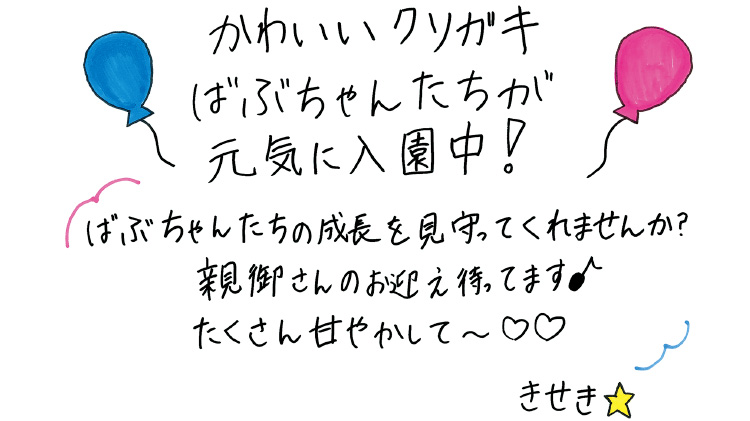 かわいいクソガキ
ばぶちゃんたちが
元気に入園中!
ばぶちゃんたちの成長を見守ってくれませんか?
親御さんのお迎え待ってます♪
たくさん甘やかして〜♡♡
きせき☆